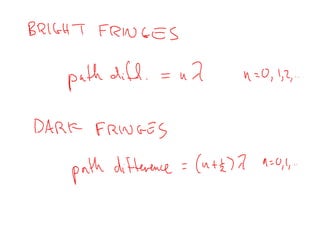 BRIGHT FRINGES
path diff. = nλ n=0,1,2,..
DARK FRINGES
path difference = (n+½)λ n=0,1,..